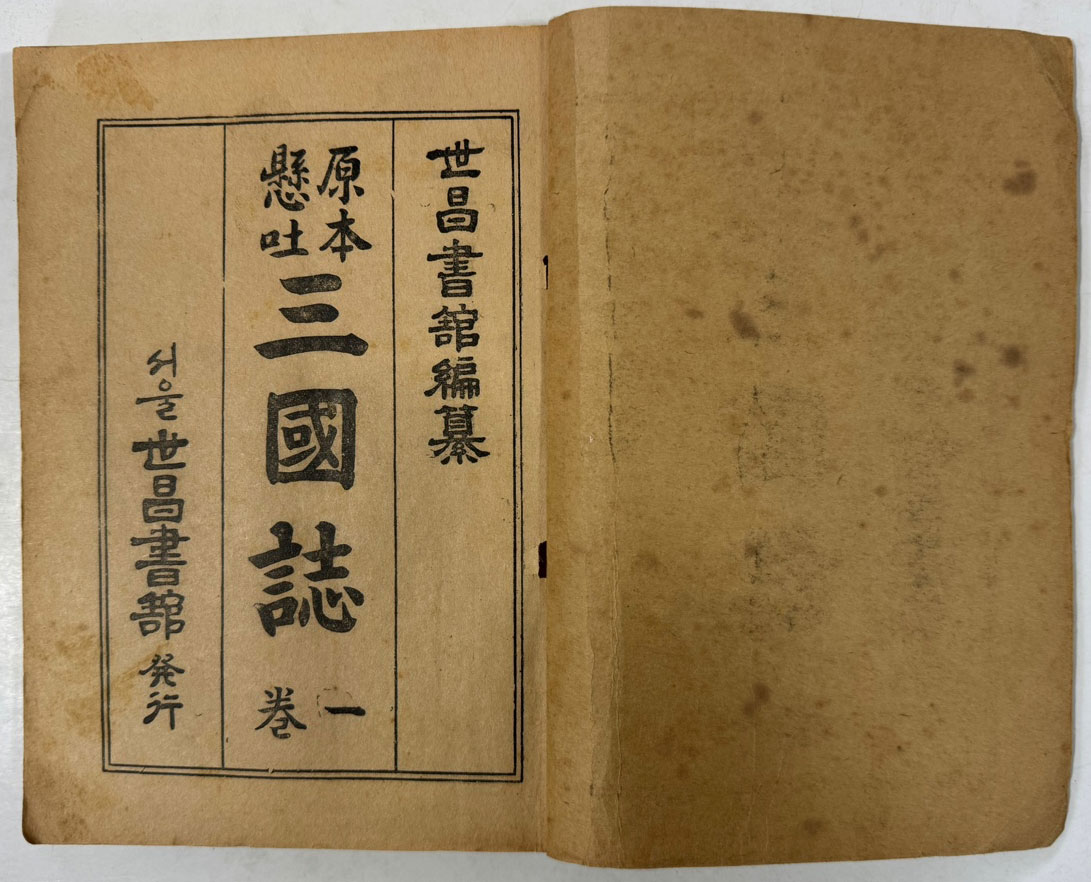 世昌書舘編纂
原本
懸吐
三國誌
一
卷
서울 世昌書舘 発行